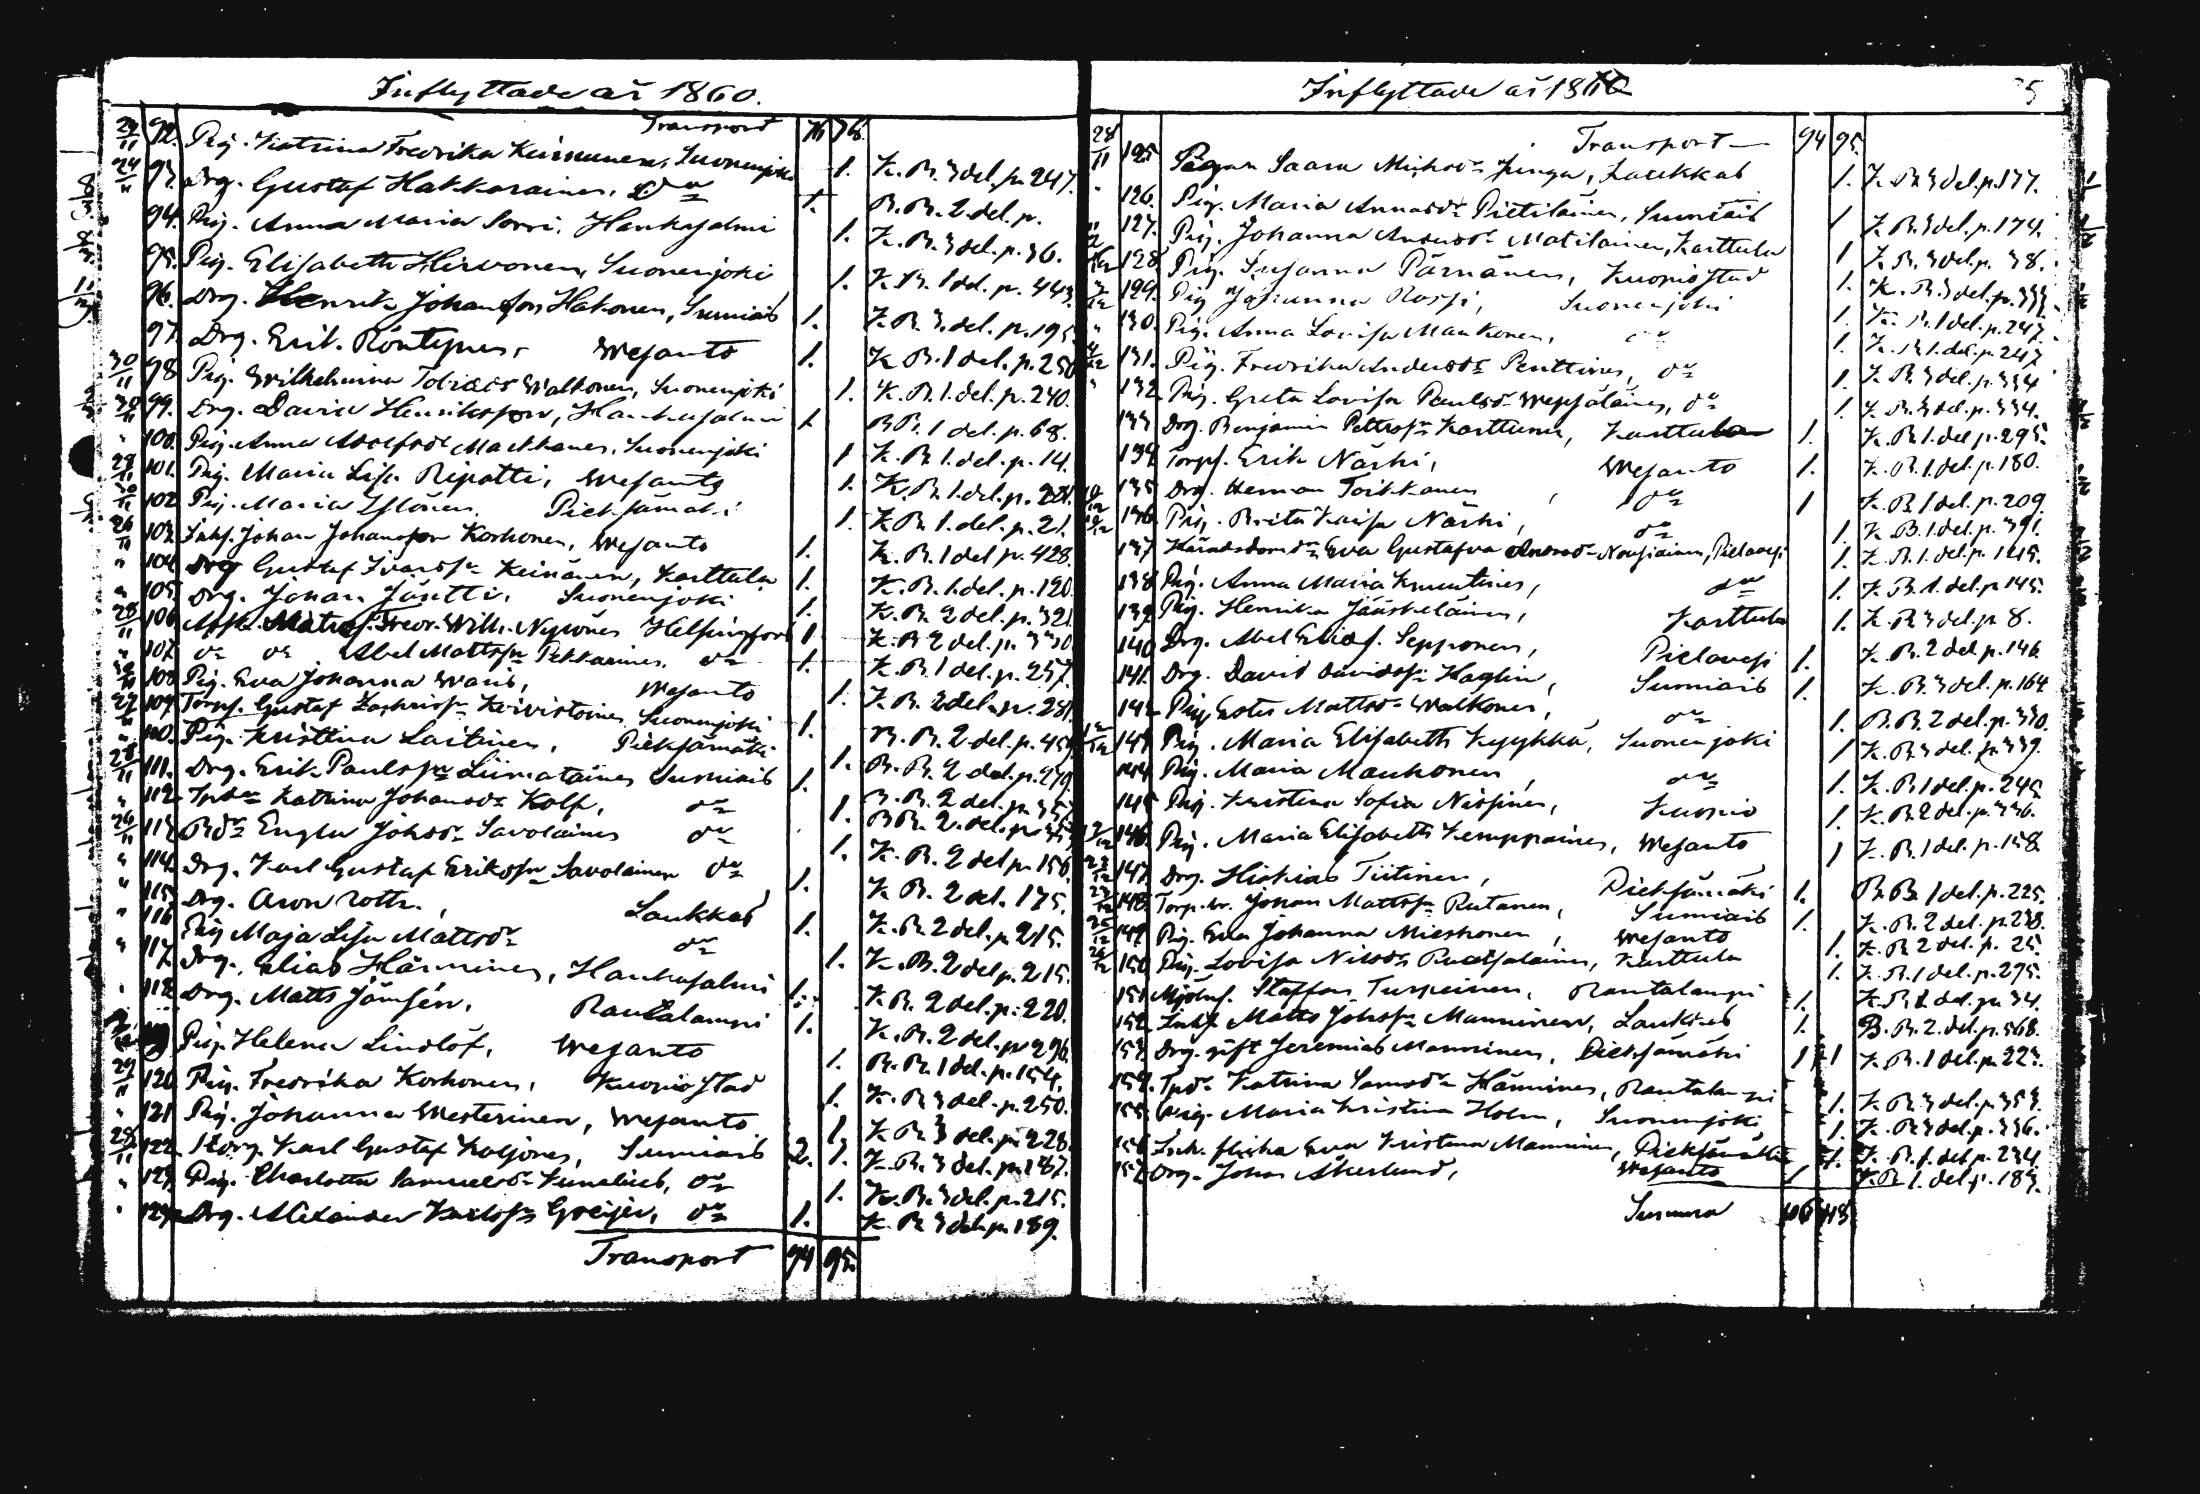 Inflyttade år 1860.
Transport 76 78.
24/11 92. Pig. Katrina Fredrika Keinänen, Suonenjoki 1. K. B. 3 del. p. 247.
24/11 93. Drg. Gustaf Hakkarainen, do 1. B. B. 2 del. p.
94. Pig. Anna Maria Sorri, Hankasalmi 1. K. B. 3 del. p. 36.
95. Pig. Elisabeth Hirvonen, Suonenjoki 1. K. B. 1 del. p. 443.
96. Drg. Henrik Johansson Hakonen, Sumiais 1. K. B. 3. del. p. 195.
97. Drg. Erik Röntynen, Wesanto 1. K. B. 1 del. p. 250
30/11 98 Pig. Wilhelmina Tobiasdr Walkonen, Suonenjoki 1. K. B. 1. del. p. 240.
30/11 99. Drg. David Henriksson, Hankasalmi 1 B. B. 1 del. p. 68.
" 100. Pig. Anna Adolfsdr Markkanen, Suonenjoki 1 K. B. 1. del. p. 14.
28/11 101. Pig. Maria Lisa Ripatti, Wesanto 1. K. B. 1. del. p. 281.
30/11 102 Pig. Maria Ylönen, Pieksämäki 1. K. B. 1. del. p. 21.
26/11 103. Inhs. Johan Johansson Korhonen, Wesanto 1. K. B. 1 del p. 428.
" 104. Drg Gustaf Ivarsson Keinänen, Karttula 1. K. B. 1. del. p. 120.
" 105. Drg. Johan Jäntti, Suonenjoki 1. K. B. 2 del. p. 321
28/11 106. Fredr. Wilh. Nylönen Helsingfors 1 K. B 2 del. p. 330
" 107. do do Abel Mattsson Pekkarinen, do 1. K. B. 1 del. p. 257.
108. Pig. Eva Johanna Waris, Wesanto 1. K. B. 2 del. p. 281
27/11 109. Torps. Gustaf Zachrisson Koivistoinen, Suonenjoki 1. B. B. 2 del. p. 454
" 110. Pig. Kristina Laitinen, Pieksämäki 1. B. B. 2 del. p. 279.
28/11 111. Drg. Erik Paulsson Liimatainen Sumiais 1. B. B. 2 del. p. 357
" 112. Katrina Johansdr Kolf, do 1. B. B. 2. del. p. 357
26/11 113. Bdr Engla Johsdr Savolainen do 1. K. B. 2 del p. 156.
" 114. Drg. Karl Gustaf Eriksson Savolainen do 1. K. B. 2 del. 175.
" 115. Drg. Aron Roth, Laukkas 1. K. B. 2 del. p. 215.
" 116. Pig Maja Lisa Mattsdr do 1. K. B. 2 del p. 215.
" 117. Drg. Elias Hänninen, Hankasalmi 1. K. B. 2 del. p. 220.
118. Drg. Matts Jämsén, Rautalampi 1. K. B. 2 del p. 296.
Pig. Helena Lindlöf, Wesanto 1. B. B. 1 del. p. 154.
29/11 120. Pig. Fredrika Korhonen, Kuopio Stad 1. K. B. 3 del. p. 250.
" 121 Pig. Johanna Westerinen, Wesanto 1 K. B. 3 del. p. 228.
28/11 122. Karl Gustaf Koljonen, Sumiais 2. 1. K. B. 3 del. p. 187.
" 123. Pig. Charlotta Samuelsdr Kunelius, do 1. K. B. 3 del. p. 215.
" 124. Drg. Alexander Karlsson Greijer, do 1. K. B. 3 del. p. 189.
Transport 94 95.
Inflyttade år 1860
Transport 94 95.
28/11 125 Pigan Saara Michsdr Jinga, Laukkas 1. K. B. 3 del. p. 177.
" 126. Pig. Maria Annasdr Pietiläinen, Sumiais 1 K. B. 3 del. p. 174.
127. Pig. Johanna Andersdr Matilainen, Karttula 1 K. B. 3 del. p. 38.
128. Pig. Susanna Pärnänen, Kuopio Stad 1. K. B. 3 del. p. 333
129. Pig Johanna Rossi, Suonenjoki 1. K. B. 1 del. p. 247.
" 130. Pig. Anna Lovisa Maukonen, do 1. K. B. 1. del. p. 247
131. Pig. Fredrika Andersdr Penttinen, do 1. K. B. 3 del. p. 334
" 132. Pig. Greta Lovisa Paulsdr Wepsäläinen, do 1. K. B. 3 del. p. 334.
133 Drg. Benjamin Pettersson Karttunen, Karttula 1. K. B. 1. del p. 295.
134 Torps. Erik Närhi, Wesanto 1. K. B. 1. del. p. 180.
135 Drg. Herman Toikkanen, do 1 K. B. 1 del. p. 209
136. Pig. Brita Kaisa Närhi, do 1. K. B. 1. del. p. 391.
137 Eva Gustafva Andersdr Nousiainen, Pielavesi 1. K. B. 1. del. p. 145.
138. Pig. Anna Maria Knuutinen, do 1. K. B. 1. del. p 145.
139. Pig. Henrika Jääskeläinen, Karttula 1. K. B. 3 del. p 8.
140. Drg. Abel Eliass. Sepponen, Pielavesi 1. K. B. 2 del p. 146.
141. Drg. David Davidsson Haglin, Sumiais 1. K. B. 3 del. p. 164
142. Pig. Ester Mattsdr Walkonen, do 1. B. B. 2 del. p. 330.
143. Pig. Maria Elisabeth Kyykkä, Suonenjoki 1 K. B. 3 del. p. 339.
144. Pig. Maria Maukonen, do 1. K. B. 1 del. p. 245
145. Pig. Kristina Sofia Nissinen, Kuopio 1. K. B. 2 del. p. 336.
146. Pig. Maria Elisabeth Kemppainen, Wesanto 1 K. B. 1 del. p. 158.
147. Drg. Hiskias Tiitinen, Pieksämäki 1. B. B. 1 del. p. 225.
148. Torp. Johan Mattsson Rutanen, Sumiais 1. K. B. 2 del. p. 238.
149. Pig. Eva Johanna Mieskonen, Wesanto 1. K. B 2 del. p. 25.
150. Pig. Lovisa Nilsdr Ruotsalainen, Karttula 1. K. B. 1 del. p. 295.
151. Mjöln. Staffan Turpeinen, Rautalampi 1. K. B. 1. del. p. 34.
152. Inhs. Matts Johsson Manninen, Laukkas 1. B. B. 2. del. p. 568.
153. Drg. gift Jeremias Manninen, Pieksämäki 1 1 K. B. 1 del. p. 223.
154. Katrina Samsdr Hänninen, Rautalampi 1. K. B. 3 del. p. 353.
155. Pig. Maria Kristina Holm, Suonenjoki 1. K. B. 3 del. p. 336.
156. Inh. flicka Eva Kristina Manninen, Pieksämäki 1. K. B. 1. del. p. 234.
157. Drg. Johan Åkerlund, Wesanto 1 K. B. 1. del. p. 183.
Summa 106